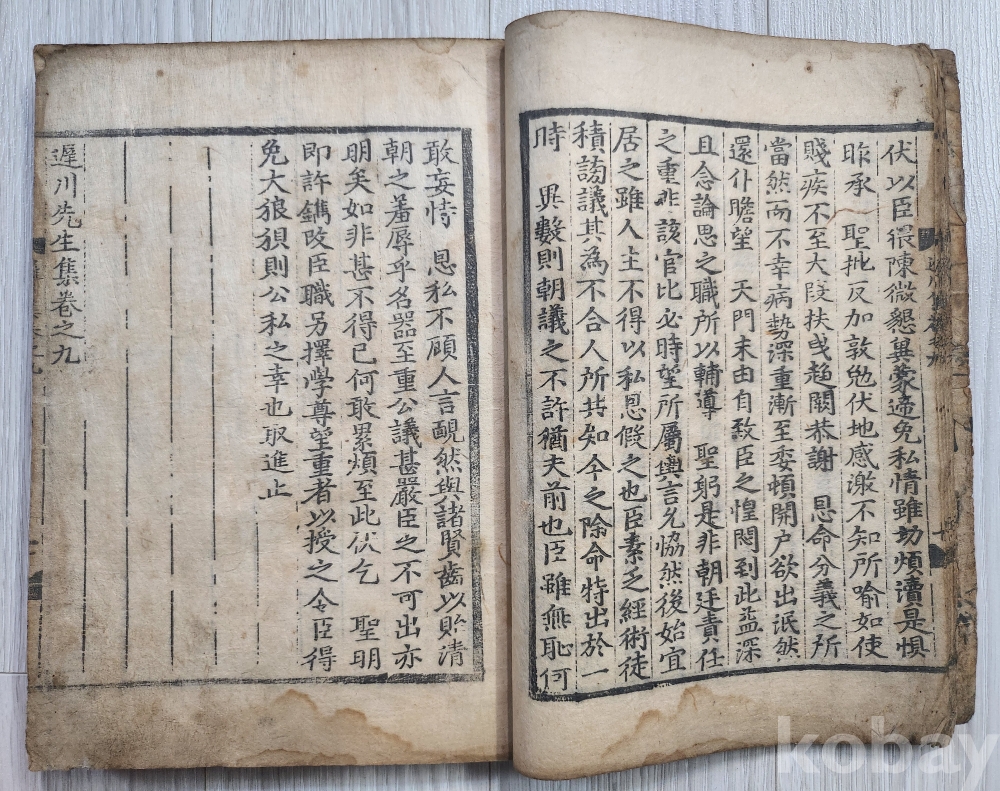 伏以臣猥陳微懇異蒙遞免私情雖切煩瀆是惧
昨承 聖批反加敦勉伏地感激不知所喩如使
賤疾不至大段扶曳趍闕恭謝 恩命分義之所
當然而不幸病勢深重漸至委頓開户欲出泯然
還仆瞻望 天門末由自致臣之惶悶到此益深
且念論思之職所以輔導 聖躬是非朝廷責任
之重非該官比必時望所屬輿言允恊然後始宜
居之雖人主不得以私恩假之也臣素乏經術徒
積謗議其為不合人所共知今之除命特出於一
時 異數則朝議之不許猶夫前也臣雖無恥何
敢妄恃 恩私不顧人言靦然與諸賢齒以貽清
朝之羞辱乎名器至重公議甚嚴臣之不可出亦
明矣如非甚不得已何敢累煩至此伏乞 聖明
即許鐫改臣職另擇學尊望重者以授之令臣得
免大狼狽則公私之幸也取進止
遲川先生集卷之九
kobay